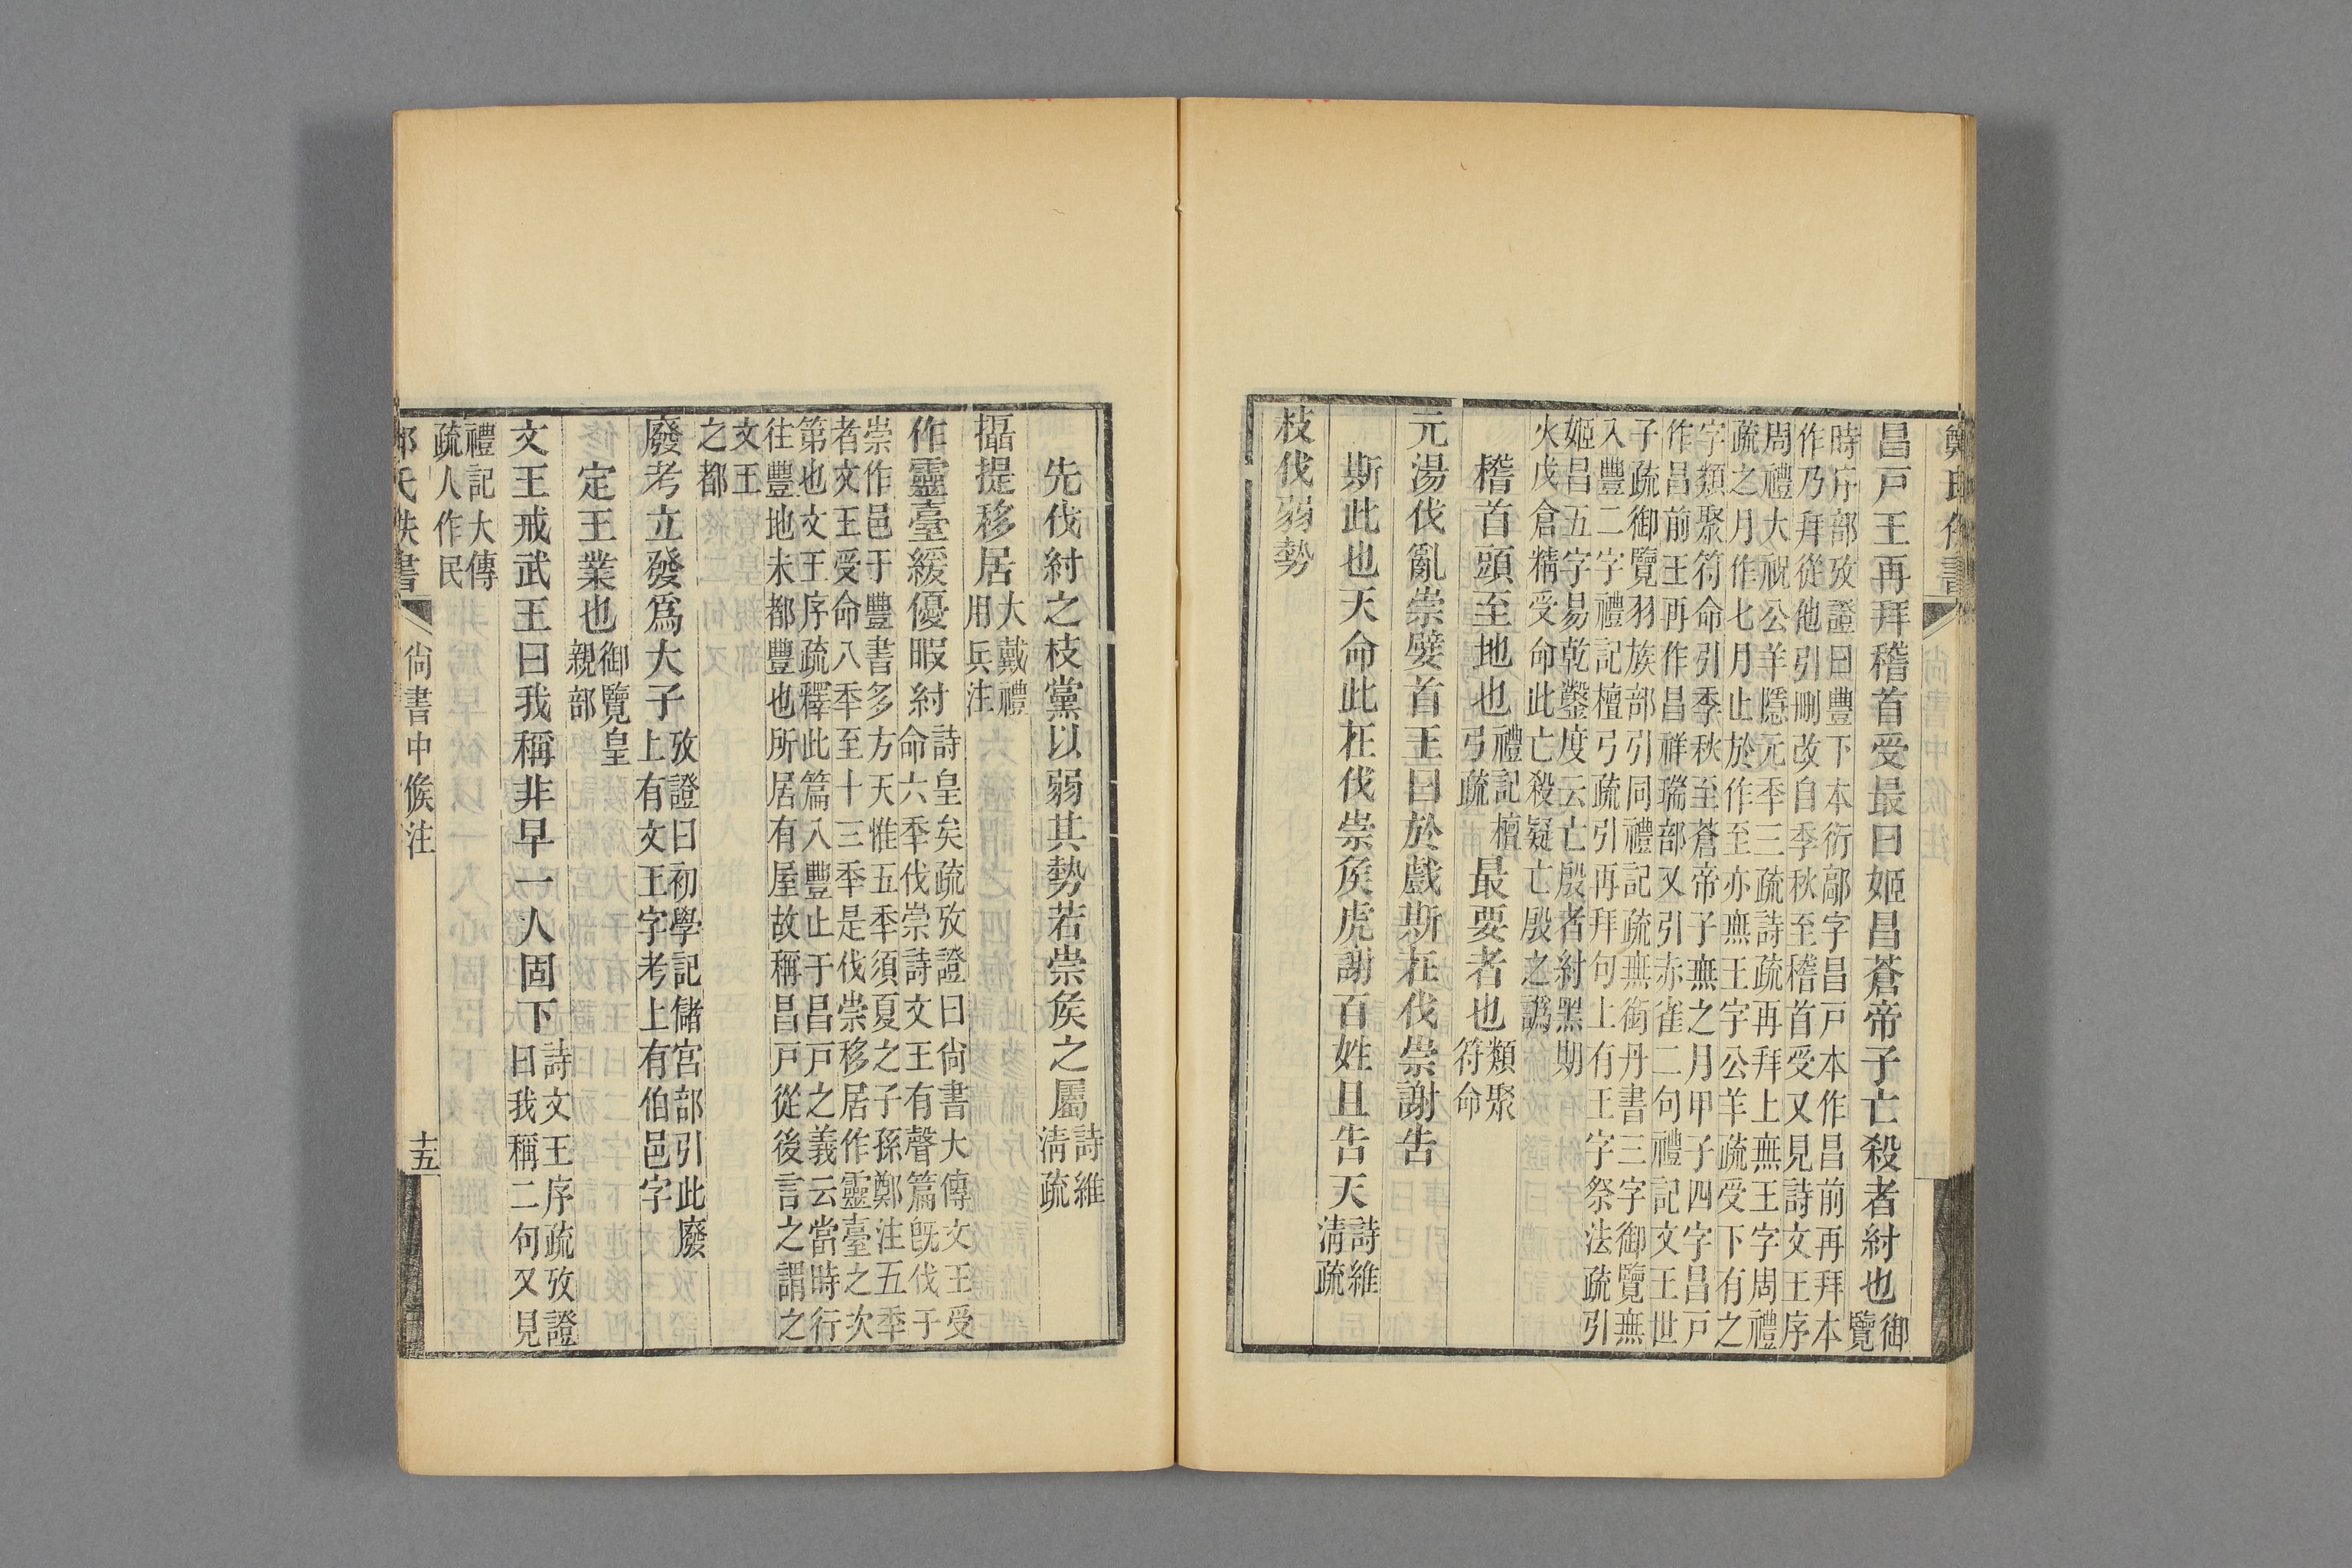 昌戸王再拜稽首受最曰姬昌蒼帝子亡殺者紂也御
覽
時序部攷證曰豐下本衍鄗字昌戸本作昌前再拜本
作乃拜從他引刪改自季秋至稽首受又見詩文王序
周禮大祝公羊隱元秊三疏詩疏再拜上無王字周禮
疏之月作七月止於作至亦無王字公羊疏受下有之
字類聚符命引季秋至蒼帝子無之月甲子四字昌戸
作昌前王再作昌祥瑞部又引赤雀二句禮記文王世
子疏御覽羽族部引同禮記疏無銜丹書三字御覽無
入豐二字禮記檀弓疏引再拜句上有王字祭法疏引
姬昌五字易乾鑿度云亡殷者紂黑期
火戊倉精受命此亡殺疑亡殷之譌
稽首頭至地也禮記檀
弓疏
最要者也類聚
符命
元湯伐亂崇孽首王曰於戲斯在伐崇謝告
斯此也天命此在伐崇矦虎謝百姓且告天詩維
淸疏
枝伐弱勢
先伐紂之枝黨以弱其勢若崇矦之屬詩維
淸疏
攝提移居大戴禮
用兵注
作靈臺緩優暇紂詩皇矣疏攷證曰尙書大傳文王受
命六秊伐崇詩文王有聲篇旣伐于
崇作邑于豐書多方天惟五秊須夏之子孫鄭注五秊
者文王受命八秊至十三秊是伐崇移居作靈臺之次
第也文王序疏釋此篇入豐止于昌戸之義云當時行
往豐地未都豐也所居有屋故稱昌戸從後言之謂之
文王
之都
廢考立發爲大子攷證曰初學記儲宮部引此廢
上有文王字考上有伯邑字
定王業也御覽皇
親部
文王戒武王曰我稱非早一人固下詩文王序疏攷證
曰我稱二句又見
禮記大傳
疏人作民
尙書中候注
十五